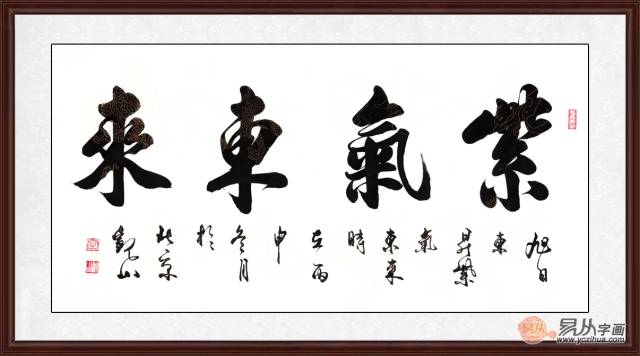 紫氣東來
旭日
東
昇紫
氣
東來
時
在丙
申
冬月
於
北京
山
易从
易从字画
www.yczihua.com